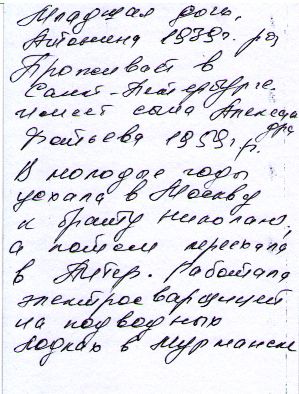 Младшая дочь,
Антонина 1939г. ро
Проживает в
Санкт-Петербурге.
имеет сына Александра
Фатьева 1959г.р.
В молодые годы
уехала в Москву
к брату Николаю,
а потом переехала
в Питер. Работала
электросварщицей
на подводных
лодках в Мурманске